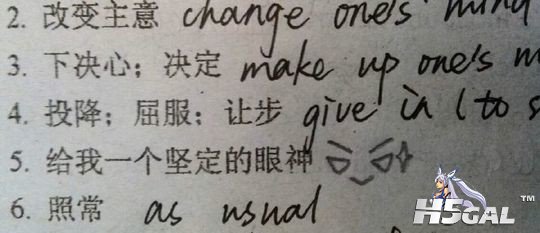 2. 改变主意 change one's mind
3. 下决心；决定 make up one's m
4. 投降；屈服；让步 give in (to s
5. 给我一个坚定的眼神
6. 照常 as usual
H5GAL™